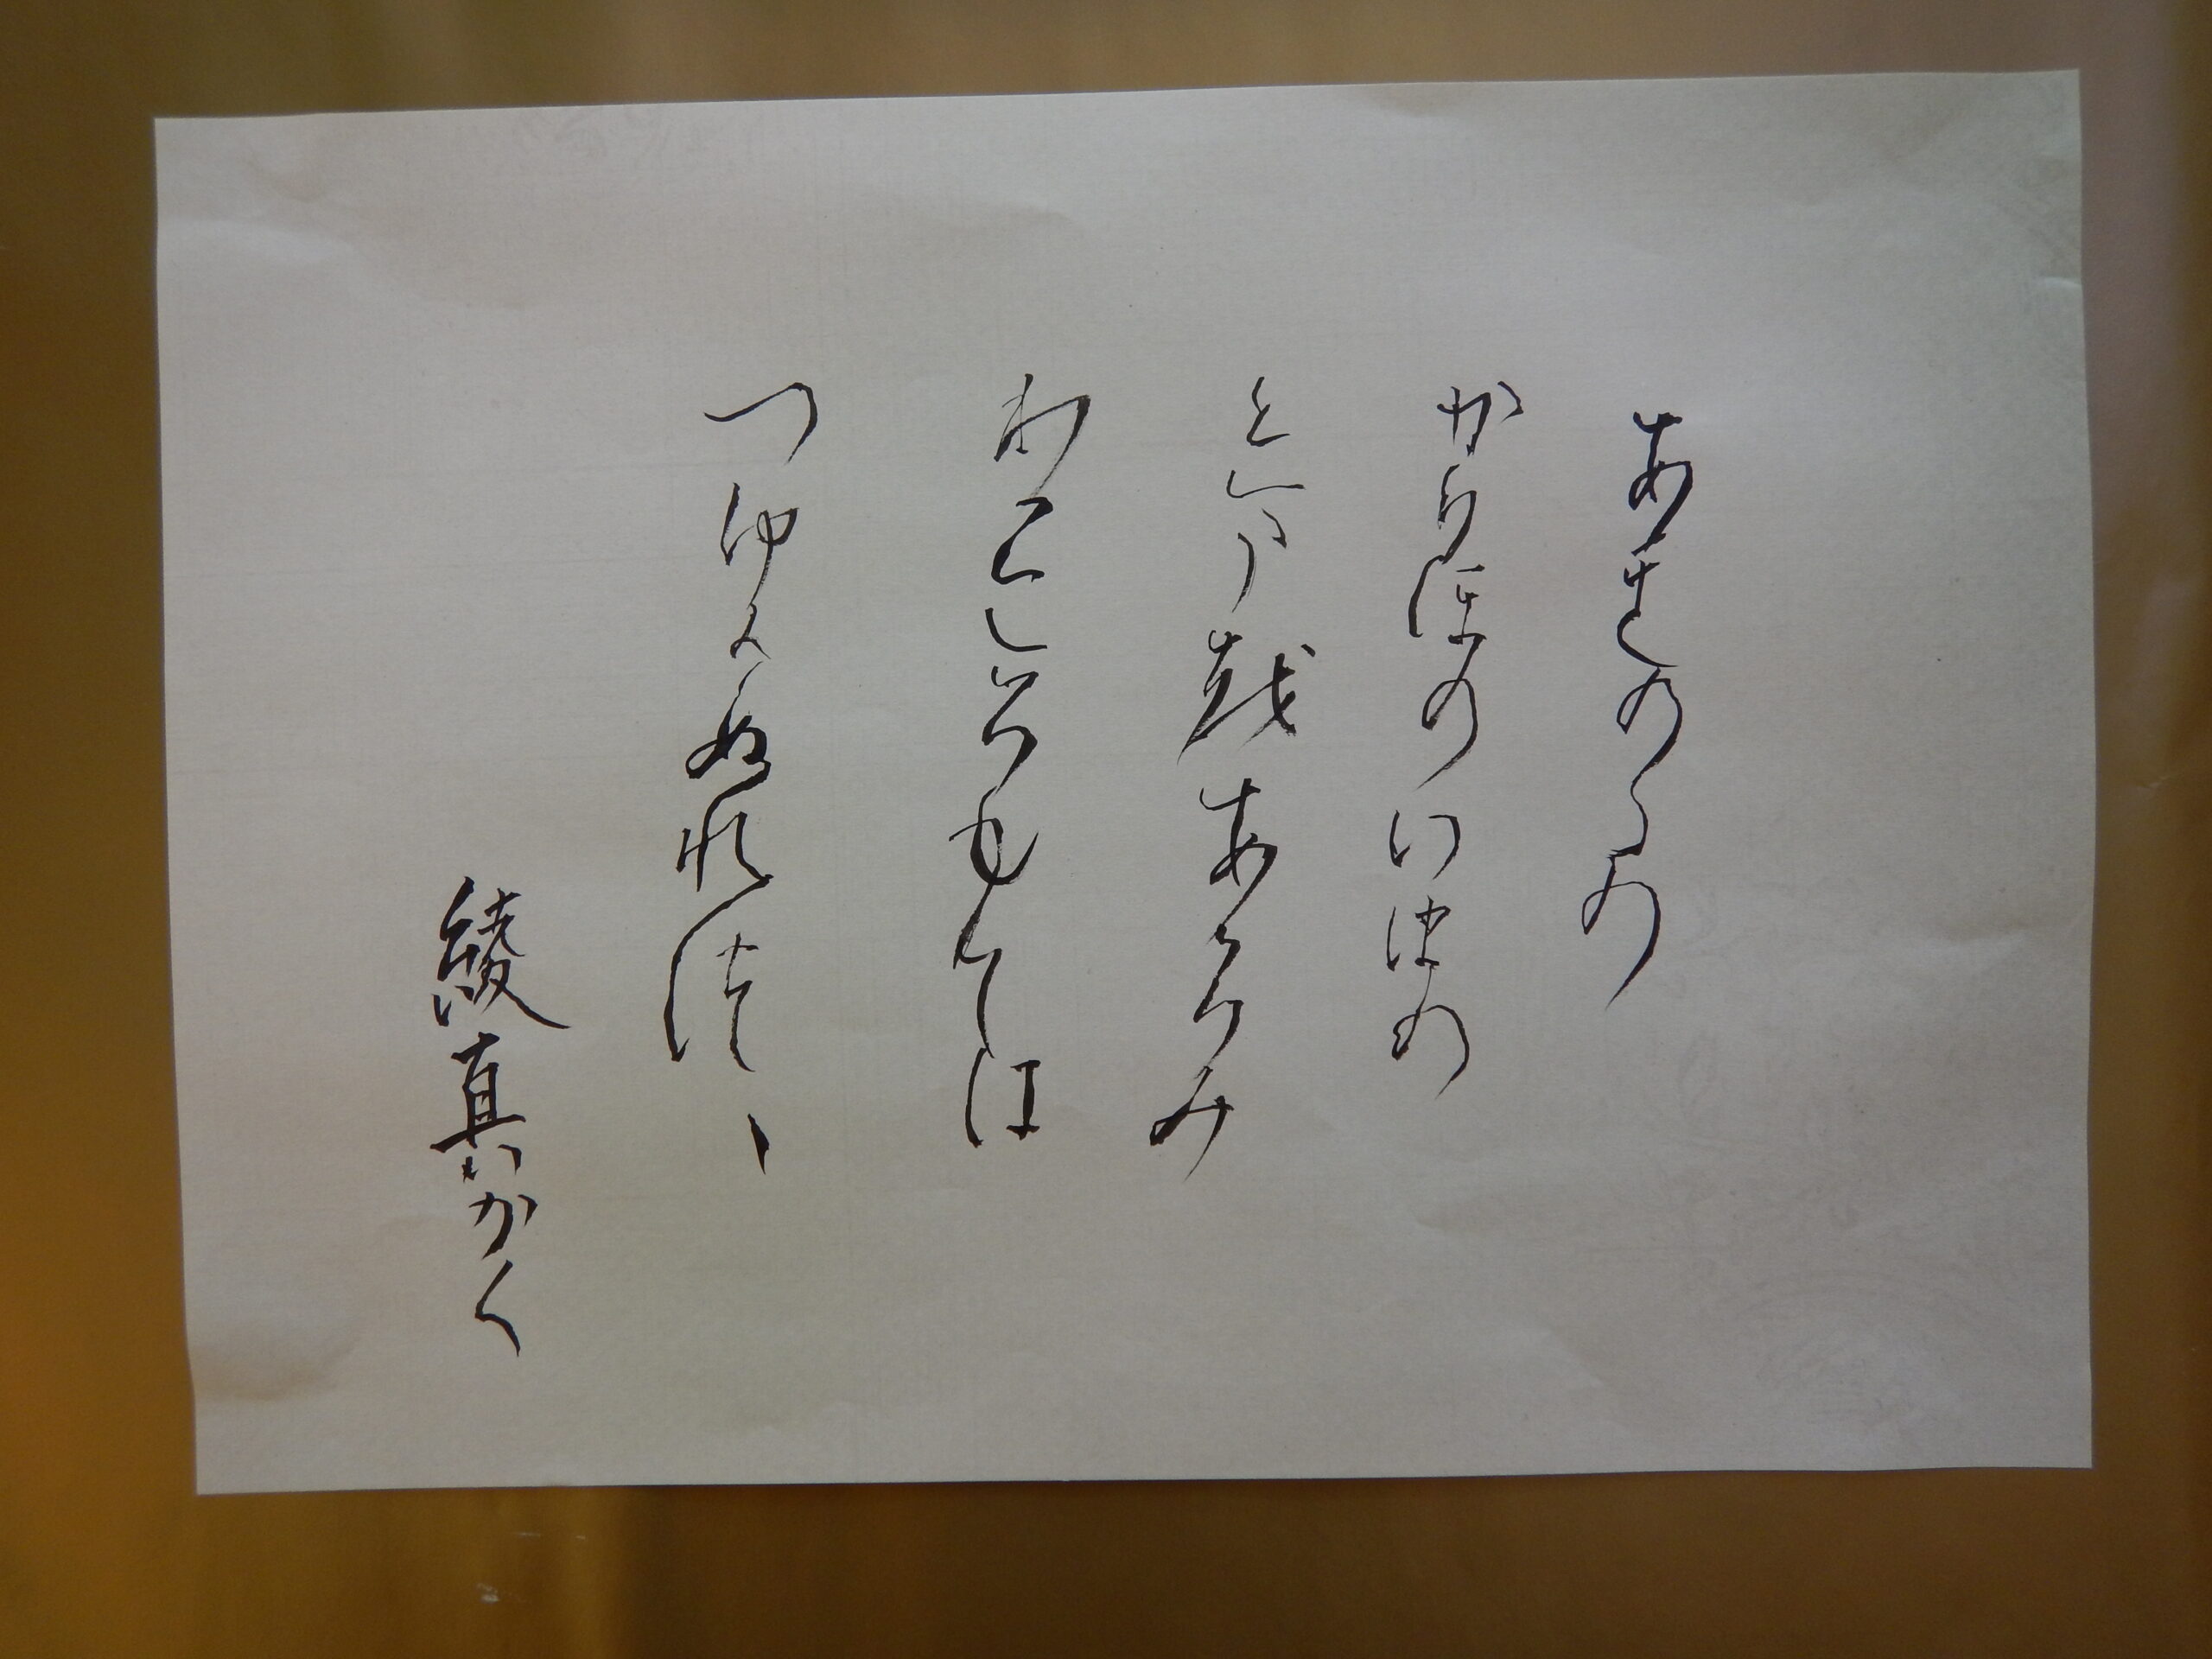 あきのたの
かりほのいほの
とま越あらみ
わがころもては
つゆにぬれつゝ
綾真かく